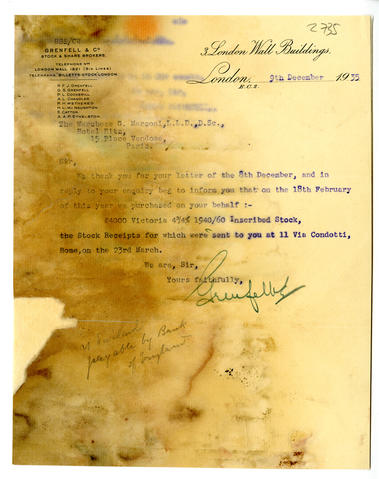 2735
GRENFELL & Co
STOCK & SHARE BROKERS.
TELEPHONE No
LONDON WALL 1821 (SIX LINES)
TELEGRAMS, GILLETTS-STOCK, LONDON.
3. London Wall Buildings.
London, 9th December 1935
E.C.2.
P. F. J. GRENFELL
A. L. CHANDLER
R. H. WETHERED
E. CATTON
The Marchese G. Marconi, L.L.D., D.Sc.,
Hotel Ritz,
15 Place Vendome,
Paris.
Sir,
We thank you for your letter of the 8th December, and in
reply to your enquiry beg to inform you that on the 18th February
of this year we purchased on your behalf :-
£4000 Victoria 1940/60 Inscribed Stock,
the Stock Receipts for which were sent to you at 11 Via Condotti,
Rome, on the 23rd March.
We are, Sir,
Yours faithfully,
Grenfell
payable by Bank
of England